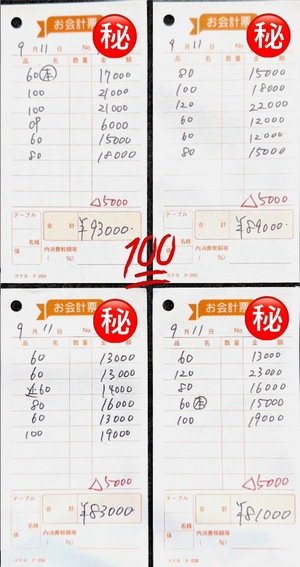 お会計票
㊙
9月11日 No.
品名 数量 金額
60㊍ 17000
100 21000
100 21000
OP 6000
60 15000
80 18000
△5000
テーブル
合計 ¥93000
係 名様 内消費税額等
( %)
お会計票
㊙
9月11日 No.
品名 数量 金額
80 15000
100 18000
120 22000
60 12000
60 12000
80 15000
△5000
テーブル
合計 ¥89000
係 名様 内消費税額等
( %)
100
お会計票
㊙
9月11日
品名 数量 金額
60 13000
60 13000
60 14000
80 16000
60 13000
100 19000
△5000
テーブル
合計 ¥83000
係 名様 内消費税額等
( %)
お会計票
㊙
9月11日
品名 数量 金額
60 13000
120 23000
80 16000
60 本 15000
100 19000
△5000
テーブル
合計 ¥81000
係 名様 内消費税額等
( %)